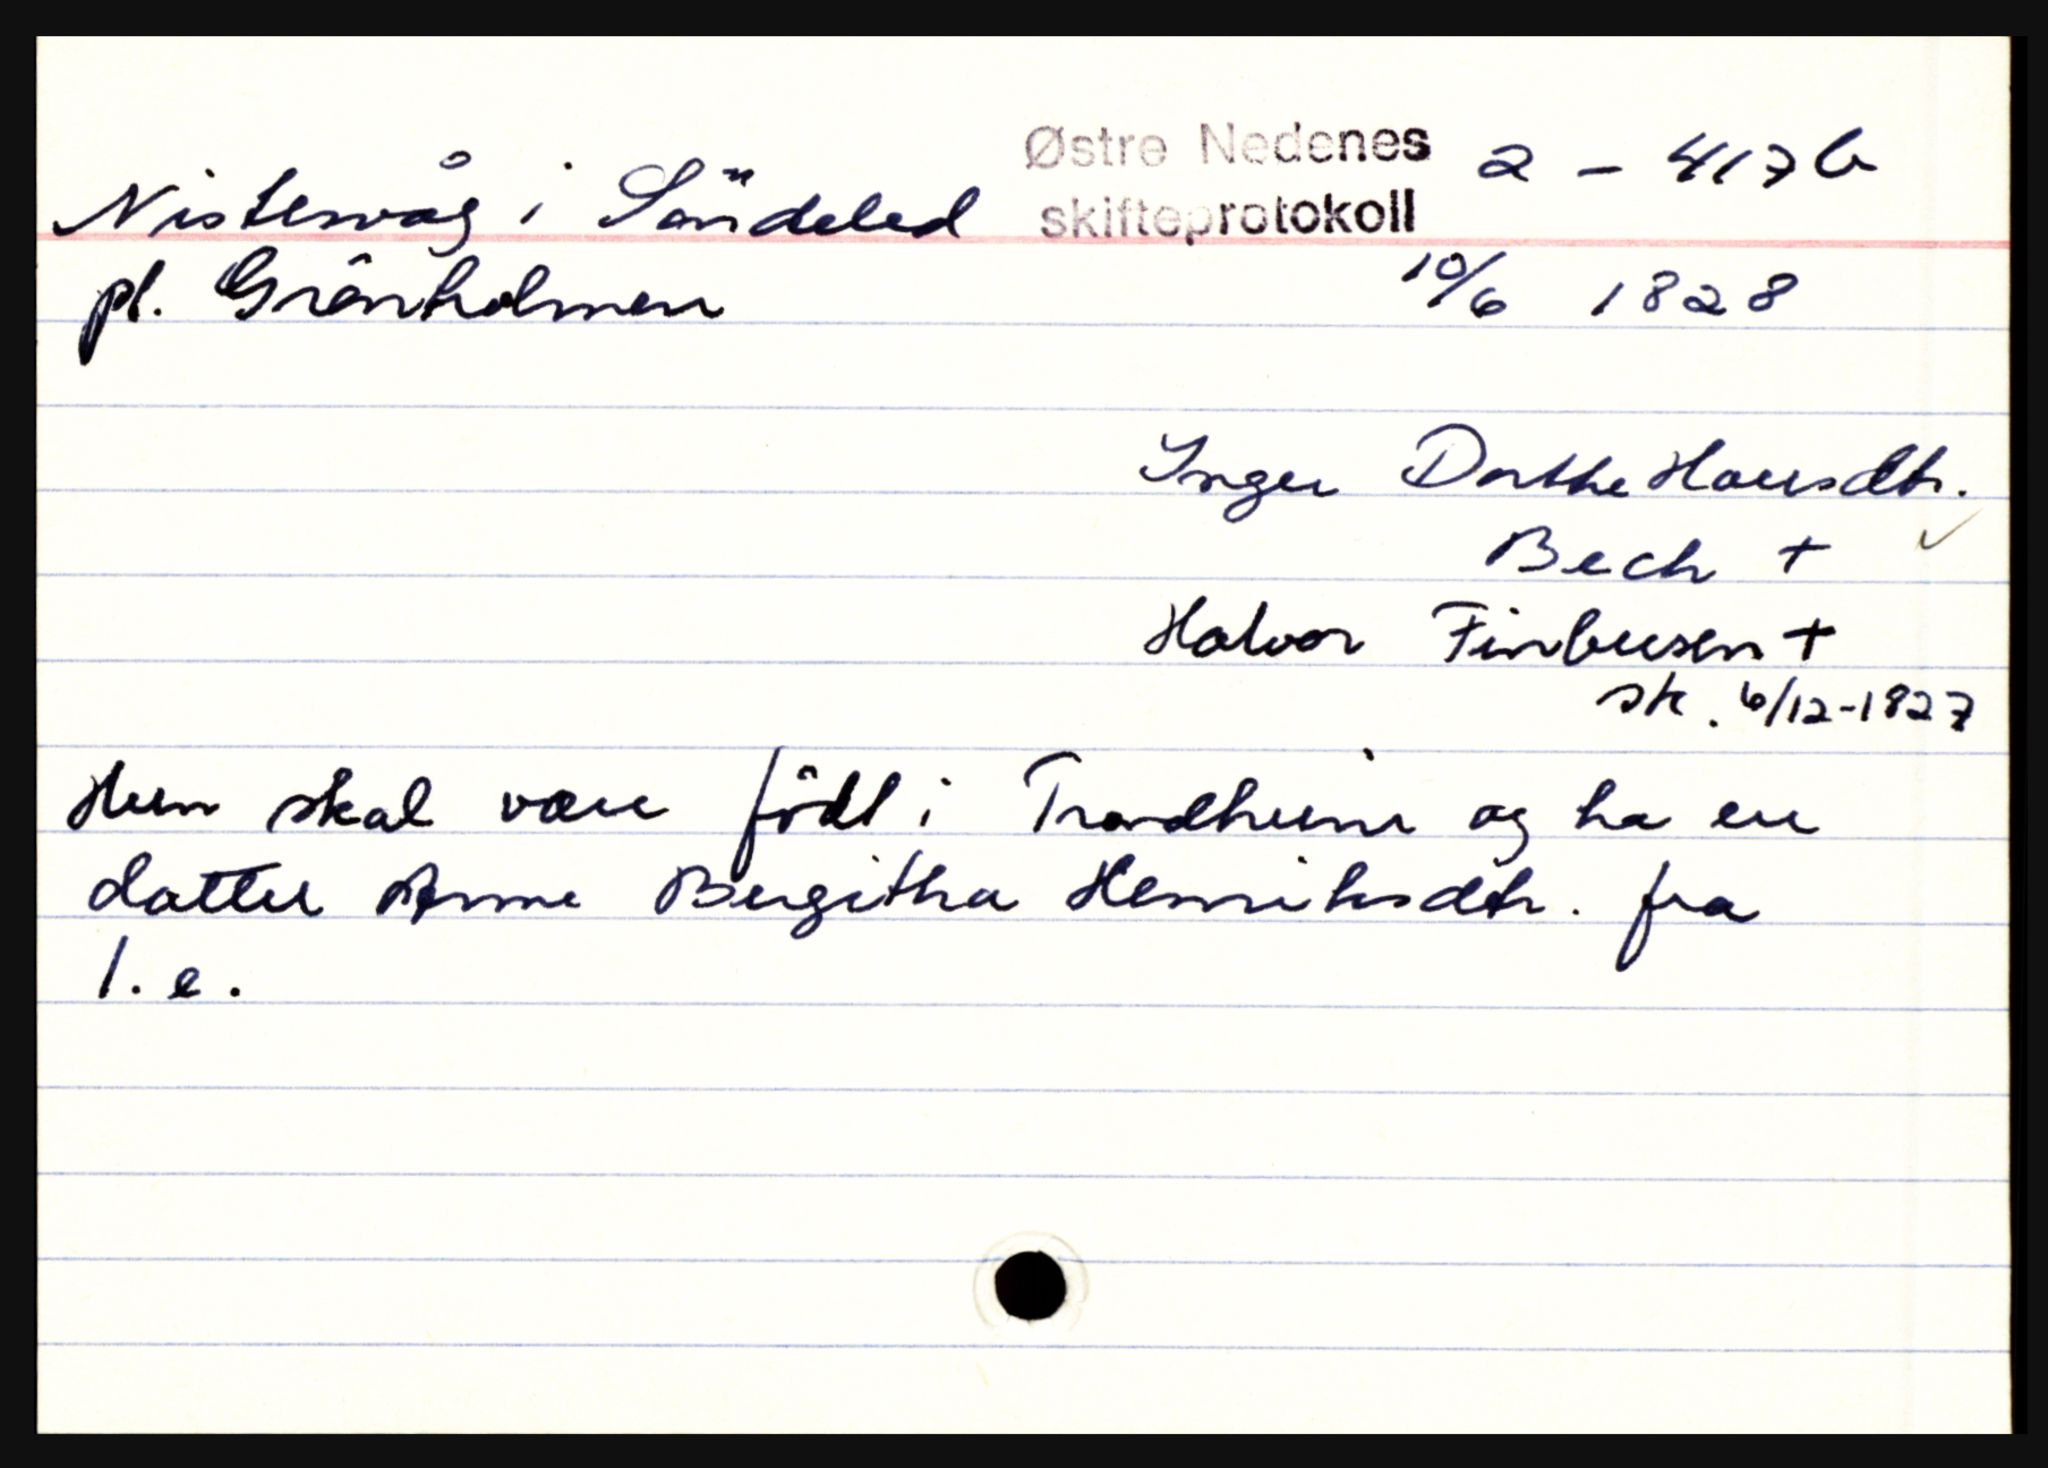 Østre Nedenes 2 - 417 b
Nistesvåg i Söndeled skifteprotokoll
pl. Grönholmen 10/6 1828
Inger Dorthe Hansdtr.
Bech +
Halvor Finbusen +
sk. 6/12-1827
Hun skal være född i Trondheim og ha en
datter Anne Bergitha Henriksdtr. fra
1. e.